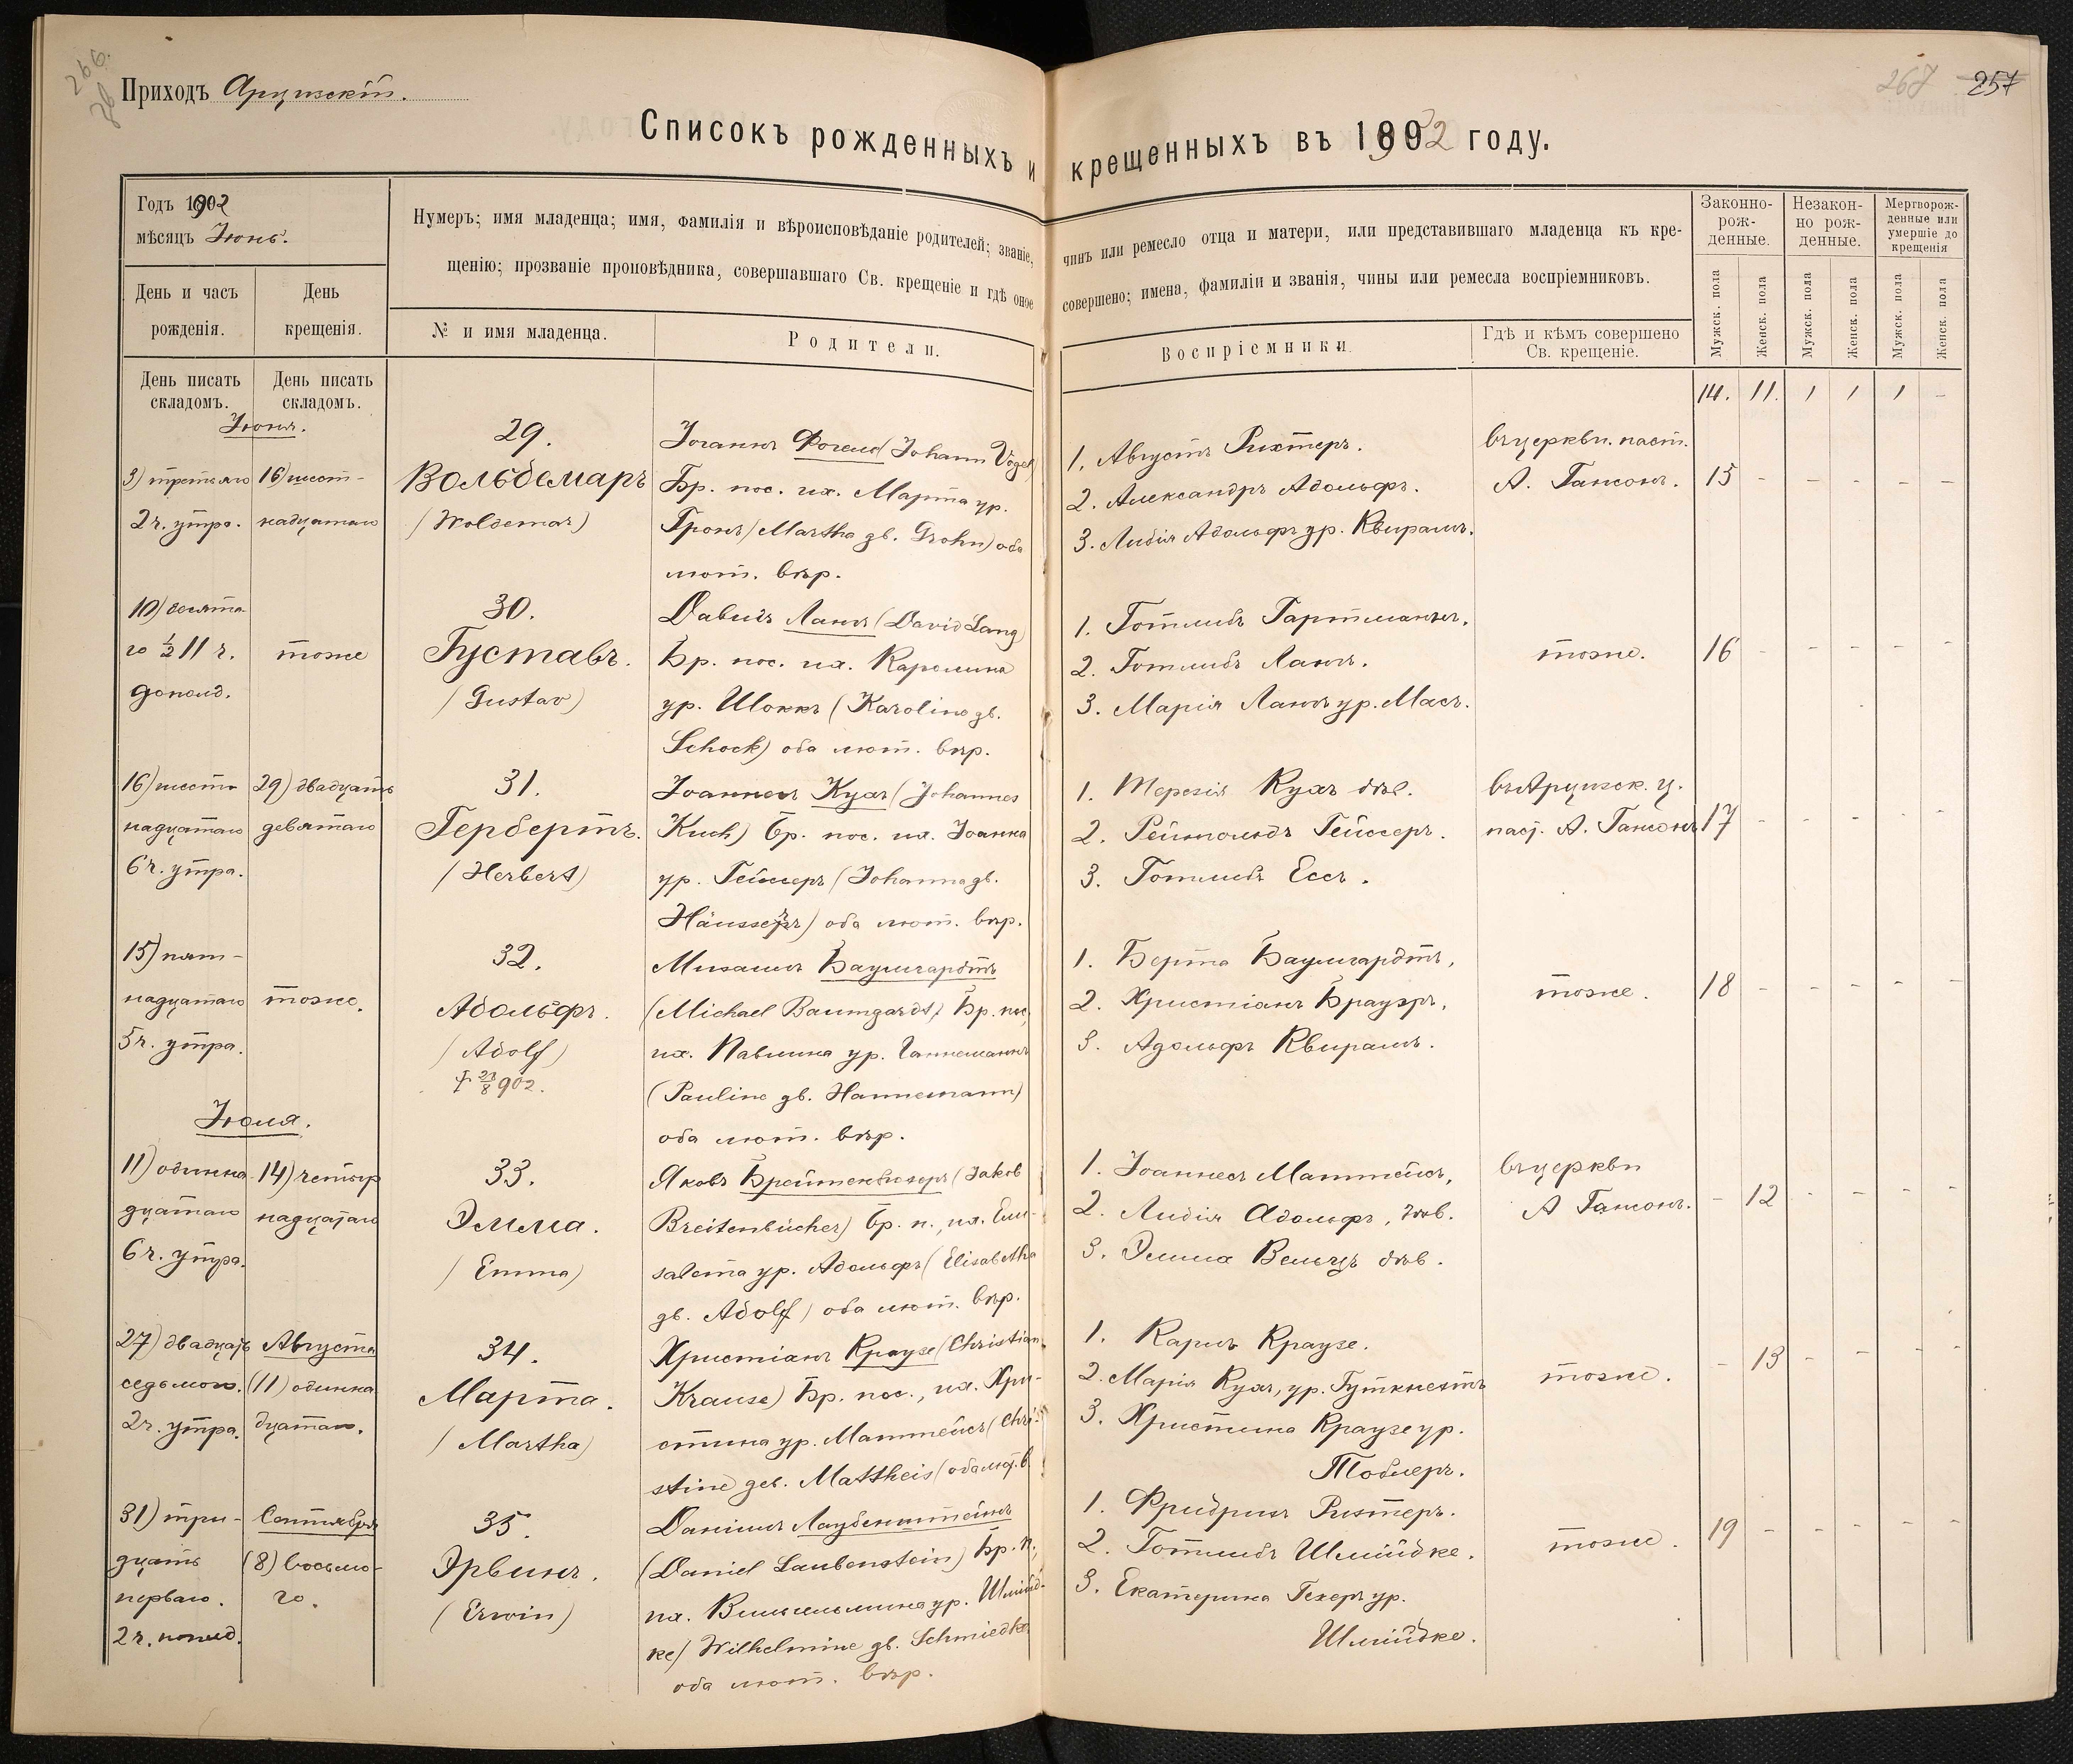 266.
Приходъ Арцизскій.
267 257
Списокъ рожденныхъ и крещенныхъ въ 1902 году.
Годъ 1902
мѣсяцъ Іюнь.
Нумеръ; имя младенца; имя, фамилія и вѣроисповѣданіе родителей; званіе, чинъ или ремесло отца и матери, или представившаго младенца къ кре-
щенію; прозваніе проповѣдника, совершавшаго Св. крещеніе и гдѣ оное совершено; имена, фамиліи и званія, чины или ремесла воспріемниковъ.
Законно-
рож-
денные.
Незакон-
но рож-
денные.
Мертворож-
денные или
умершіе до
крещенія
День и часъ
рожденія.
День
крещенія.
№ и имя младенца.
Родители.
Воспріемники.
Гдѣ и кѣмъ совершено
Св. крещеніе.
Мужск. пола
Женск. пола
Мужск. пола
Женск. пола
Мужск. пола
Женск. пола
День писать
складомъ.
День писать
складомъ.
14. 11. 1 1 1 -
Іюня.
3) третьяго
2 ч. утра.
16) шест-
надцатаго
29.
Вольдемаръ
(Woldemar)
Іоганнъ Фогель (Johann Vogel)
Бр. пос. их. Марта ур.
Гронъ (Martha gb. Grohn) оба
лют. вѣр.
1. Августъ Рихтеръ.
2. Александръ Адольфъ.
3. Лидія Адольфъ ур. Квирамъ.
въ церкви. паст.
А. Гансонъ.
15 - - - - -
10) десята
го ½ 11 ч.
дополд.
тоже
30.
Густавъ.
(Gustav)
Давидъ Лангъ (David Lang)
Бр. пос. их. Каролина
ур. Шоккъ (Karoline gb.
Schock) оба лют. вѣр.
1. Готлибъ Гартманнъ.
2. Готлибъ Лангъ.
3. Марія Лангъ ур. Масъ.
тоже.
16 - - - - -
16) шест-
надцатаго
6 ч. утра.
29) двадцать
девятаго
31.
Гербертъ.
(Herbert)
Іоаннесъ Кухъ (Johannes
Kuch) бр. пос. их. Іоанна
ур. Гейссеръ (Johanna gb.
Häusser) оба лют. вѣр.
1. Терезія Кухъ дѣв.
2. Рейнгольдъ Гейссеръ.
3. Готлибъ Ессъ.
въ Арцизск. ц.
паст. А. Гансонъ
17 - - - - -
15) пят-
надцатаго
5 ч. утра.
тоже.
32.
Адольфъ.
(Adolf)
† 21/8 902.
Михаилъ Баумгардтъ
(Michael Baumgardt) Бр. пос.
их. Павлина ур. Ганнеманнъ
(Pauline gb. Hannemann)
оба лют. вѣр.
1. Берта Баумгардтъ,
2. Христіанъ Брауэръ,
3. Адольфъ Квирамъ.
тоже.
18 - - - - -
Іюля.
11) одинна
дцатаго
6 ч. утра.
14) четыр
надцатаго
33.
Эмма.
(Emma)
Яковъ Брейтенбюхеръ (Jakob
Breitenbücher) бр. п., их. Ели-
сабета ур. Адольфъ (Elisabetha
gb. Adolf) оба лют. вѣр.
1. Іоаннесъ Маттейсъ,
2. Лидія Адольфъ, дѣв.
3. Эмма Вельцъ дѣв.
въ церкви
А Гансонъ.
- 12 - - - -
27) двадцать
седьмого.
2 ч. утра.
Августа
(11) одинна
дцатаго.
34.
Марта.
(Martha)
Христіанъ Краузе (Christian
Krause) Бр. пос., их. Хри-
стина ур. Маттейсъ (Chri-
stine geb. Mattheis) оба лют. в.
1. Карлъ Краузе.
2. Марія Кухъ, ур. Гуткнехтъ
3. Христина Краузе ур.
Тоблеръ.
тоже.
- 13 - - - -
31) три-
дцать
перваго.
2 ч. пополд.
Сентября
(8) восьмо-
го.
35.
Эрвинъ.
(Erwin)
Даніилъ Лаубенштейнъ
(Daniel Laubenstein) Бр. п.,
их. Вильгельмина ур. Шмид-
ке (Wilhelmine gb. Schmiedke
оба лют. вѣр.
1. Фридрихъ Рихтеръ.
2. Готлибъ Шмидке.
3. Екатерина Гехеръ ур.
Шмидке.
тоже.
19 - - - - -